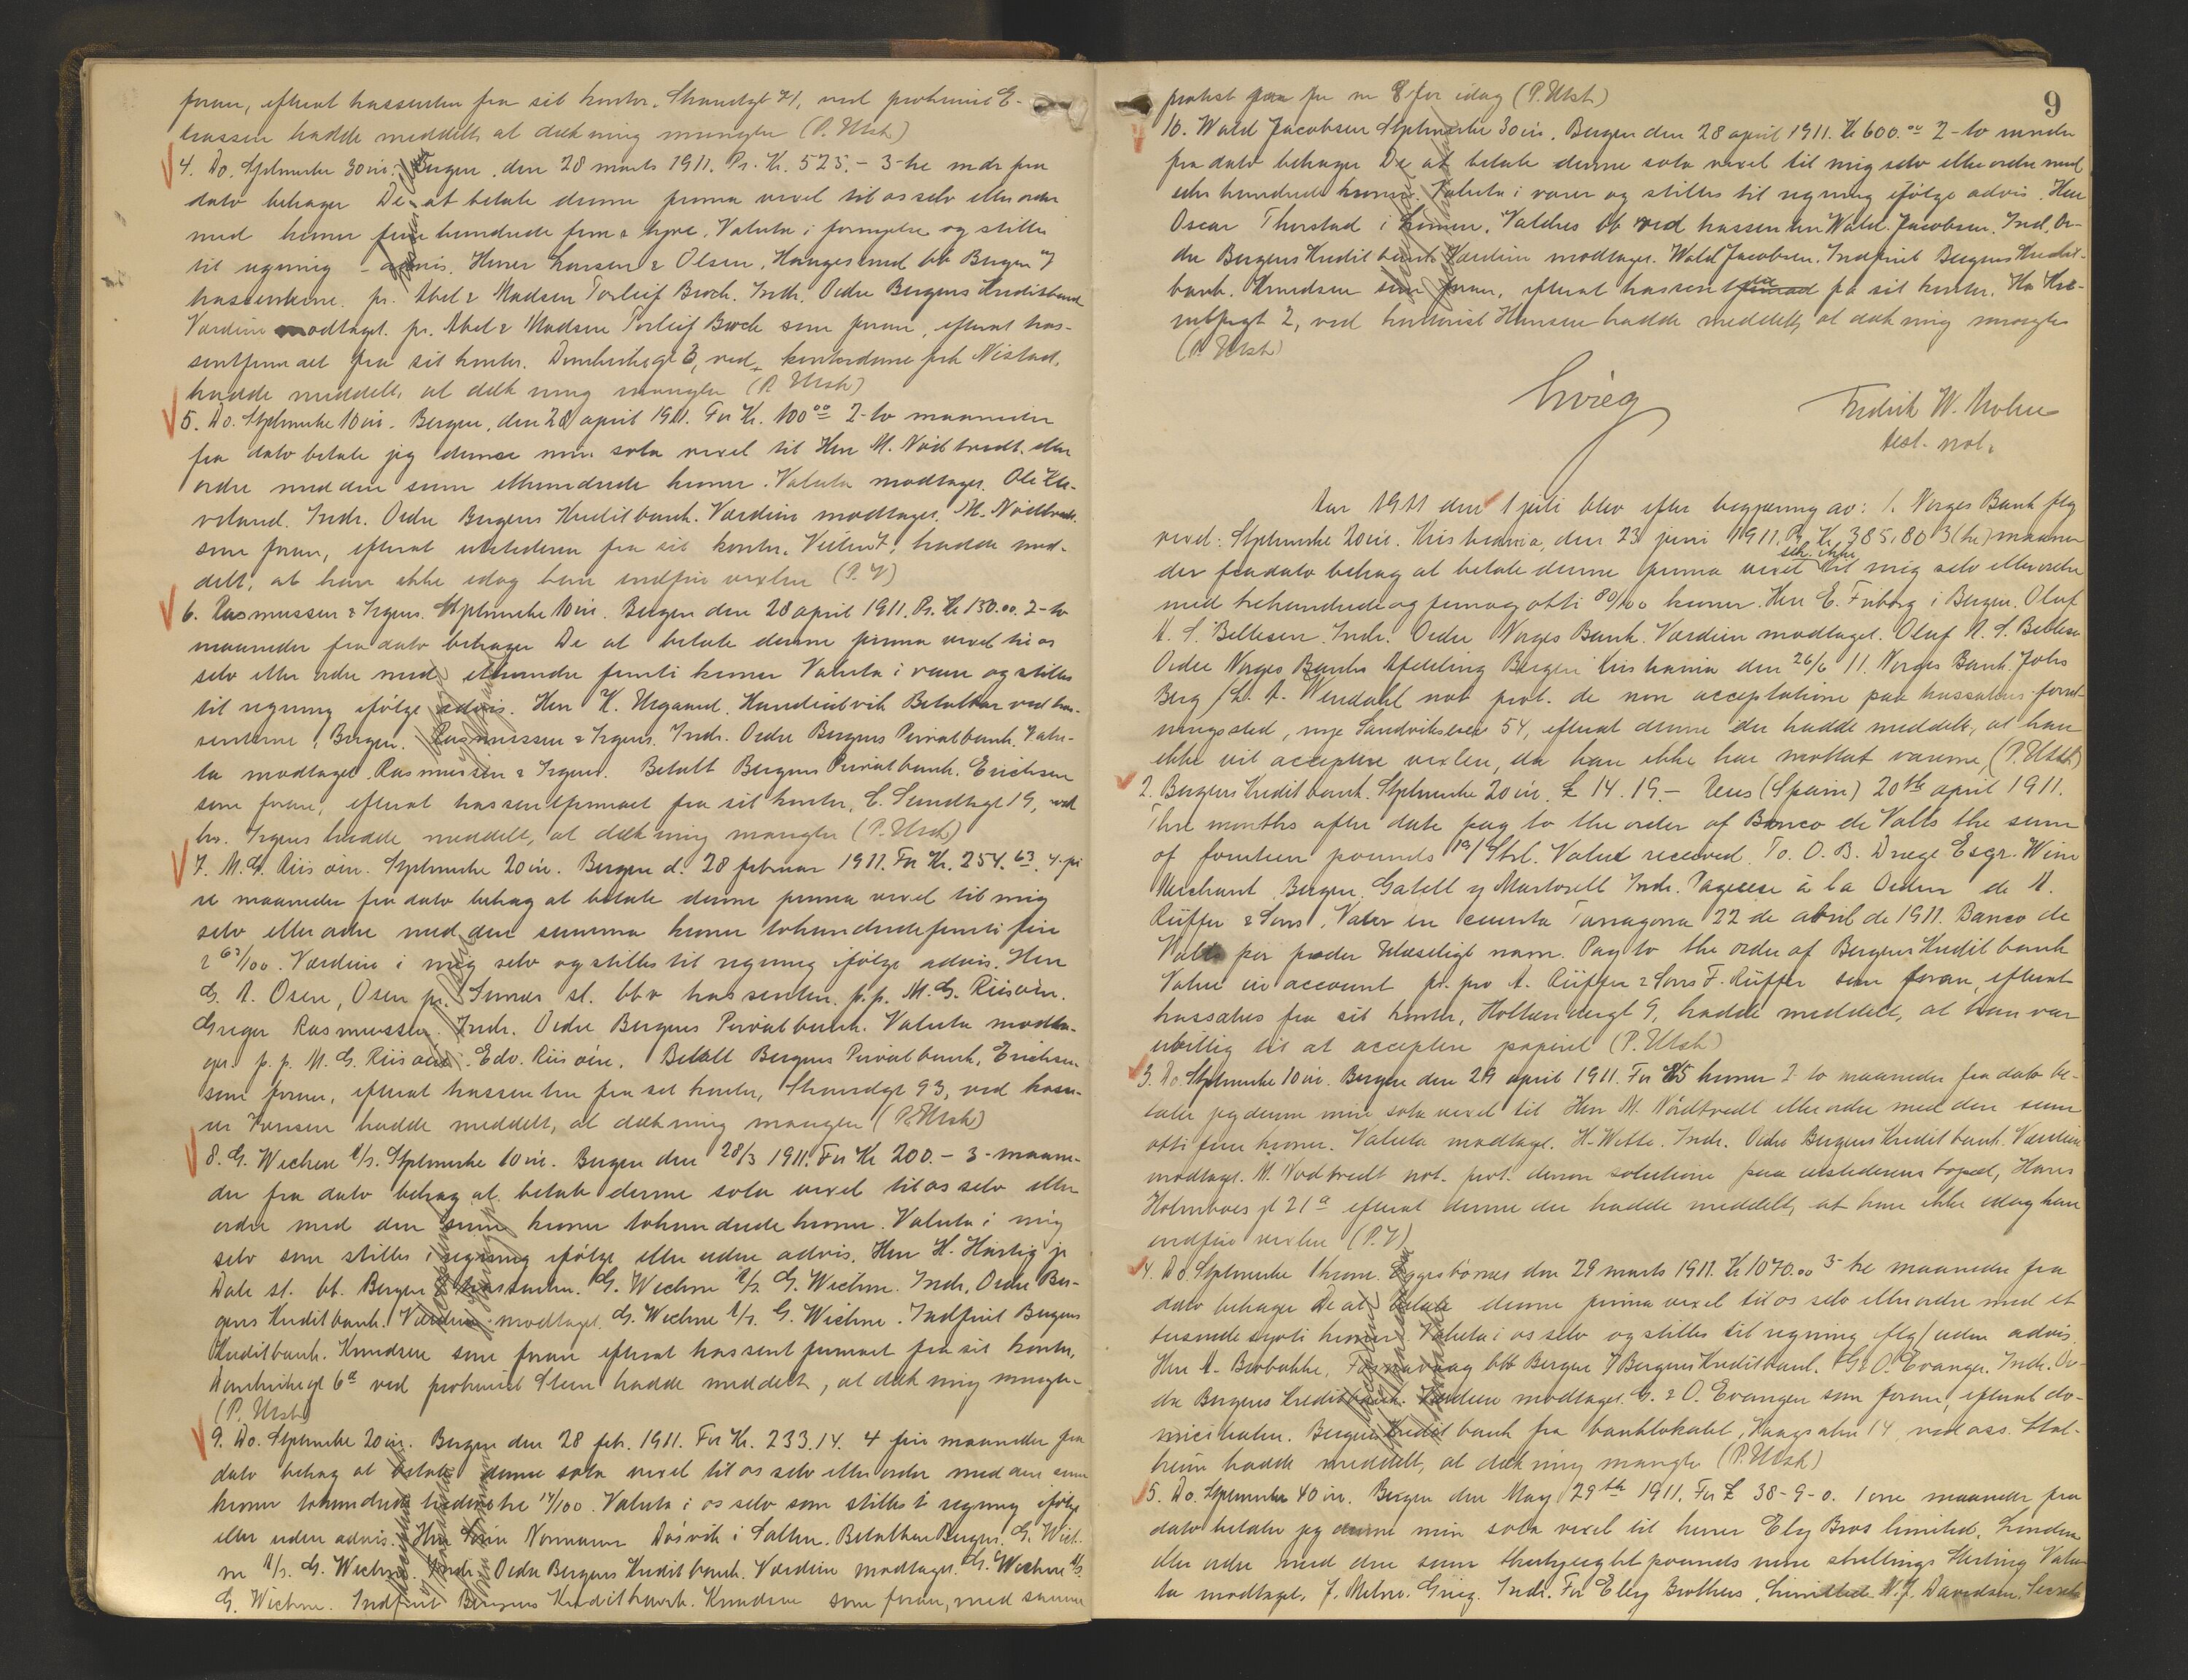 foran, efterat trassenten fra sit kontor, Strandgt 21, ved prokurist E-
trassen hadde meddelt, at dækning mangler (P. Utsh)
4. Do. Stplmerke 30 øre. Bergen, den 28 marts 1911. Pr. Kr. 525.- 3-tre mdr fra
dato behager De at betale denne prima vexel til os selv eller ordre
med kroner fem hundrede fem & tyve. Valuta i fornøielse og stilles
til regning - advis. Herrer Larsen & Olsen, Haugesund bb Bergen
trassenterne. pr. Abel & Madsen Torleif Broch. Indr. Ordre Bergens Kreditbank
Værdien modtaget. pr. Abel & Madsen Torleif Broch som foran, efterat tras-
sentfirmaet fra sit kontor. Domkirkegt 3, ved kontordame frk Nistad,
hadde meddelt, at dækning mangler (P. Utsh)
5. Do. Stplmerke 10 øre. Bergen, den 28 april 1911. For Kr. 100.00 2-to maaneder
fra dato betaler jeg denne min sola vexel til Herr M. Nödtvedt eller
ordre med den sum etthundrede kroner. Valuta modtaget. Ole Kle-
veland. Indr. Ordre Bergens Kreditbank. Værdien modtaget. M. Nödtvedt
som foran, efterat utstederen fra sit kontor, Veiten 7, hadde med-
delt, at han ikke idag kan indfri vexlen (P. V)
6. Rasmussen & Irgens. Stplmerke 10 øre. Bergen den 28 april 1911. Pr. Kr 150.00. 2-to
maaneder fra dato behager De at betale denne prima vexel til os
selv eller ordre med etthundre femti kroner Valuta i varer og stilles
til regning ifølge advis. Herr K. Urgaard. Hundeidvik Betalbar ved tras-
senterne i Bergen. Rasmussen & Irgens. Indr. Ordre Bergens Privatbank. Valu-
ta modtaget Rasmussen & Irgens. Betalt Bergens Privatbank. Erichsen
som foran, efterat trassentfirmaet fra sit kontor, C. Sundtsgt 19, ved
hr. Irgens hadde meddelt, at dækning mangler (P. Utsh)
7. M. G. Riisøen. Stplmerke 20 øre. Bergen d. 28 februar 1911. For Kr. 254.63. 4-fi
re maaneder fra dato behag at betale denne prima vexel til mig
selv eller ordre med den summa kroner tohundredefemti fire
& 63/100. Værdien i mig selv og stilles til regning ifølge advis. Herr
G. A. Osen, Osen pr. Sunnes st. bbv trassenten. p.p. M. G. Riisøen.
Greger Rasmussen. Indr. Ordre Bergens Privatbank. Valuta modta-
get. p.p. M. G. Riisøen. Edv. Riisøen. Betalt Bergens Privatbank, Erichsen
som foran, efterat trassenten fra sit kontor, Strandgt 93, ved kasse-
rer Iversen hadde meddelt, at dækning mangler (P. Utsh)
8. G. Wichne A/s. Stplmerke 10 øre. Bergen den 28/3 1911. For Kr 200.- 3-maane-
der fra dato behag at betale denne sola vexel til os selv eller
ordre med den sum kroner tohundrede kroner. Valuta i mig
selv som stilles i regning ifølge eller uden advis. Herr H. Hartig jr
Dale st. bt. Bergen trassenten. G. Wichne A/s. G. Wichne. Indr. Ordre Ber-
gens Kreditbank. Værdien modtaget. G. Wichne A/s. G. Wichne. Indfriet Bergens
Kreditbank. Knudsen som foran efterat trassentfirmaet fra sit kontor,
Domkirkegt 6a ved prokurist Steen hadde meddelt, at dækning mangler
(P. Utsh)
9. Do. Stplmerke 20 øre. Bergen den 28 feb. 1911. For Kr. 233.14. 4 fire maaneder fra
dato behag at betale denne sola vexel til os selv eller ordre med den sum
kroner tohundrede trediotre 14/100. Valuta i os selv som stilles i regning ifølge
eller uden advis. Herr Normann Dösvik i Salten. Betalbar Bergen. G. Wich-
ne A/s. G. Wichne. Indr. Ordre Bergens Kreditbank. Værdien modtaget. G. Wichne A/s.
G. Wichne. Indfriet Bergens Kreditbank. Knudsen som foran, med samme
9
protest paa fra no 8 for idag (P. Utsh)
10. Wald Jacobsen Stplmerke 30 øre. Bergen den 28 april 1911. Kr 600.00 2-to mndr
fra dato behager De at betale denne sola vexel til mig selv eller ordre med
seks hundrede kroner. Valuta i varer og stilles til regning ifølge advis. Herr
Oscar Thorstad i Lomen. Valdres bb ved trassenten Wald. Jacobsen. Ind. Or-
dre Bergens Kreditbank. Værdien modtaget. Wald Jacobsen. Indfriet Bergens Kredit-
bank. Knudsen som foran, efterat trassenten fra sit kontor,
2, ved kontorist Hansen hadde meddelt, at dækning mangler
(P. Utsh)
Grieg
Fredrik W. Holm
test. not.
Aar 1911 den 1 juli blev efter begjæring av: 1. Norges Bank flg
vexel: Stplmerke 20 øre. Kristiania, den 23 juni 1911. Pr. Kr. 385,80 3 (tre) maane-
der fra dato behag at betale denne prima vexel til mig selv eller ordre
med trehundrede og femogotti 80/100 kroner. Herr E. Friborg i Bergen. Oluf
A. S. Bellesen. Indr. Ordre Norges Bank. Værdien modtaget. Oluf A. S. Bellesen
Ordre Norges Banks Afdeling Bergen Kristiania den 26/6 11. Norges Bank. Johs
Berg / L. A. Wendahl not prot. de non acceptatione paa trassatus forret-
ningssted, nye Sandviksvei 54, efterat denne der hadde meddelt, at han
ikke vil acceptere vexlen, da han ikke har mottat varerne, (P. Utsh)
2. Bergens Kreditbank. Stplmerke 20 øre. £ 14. 19.- Reus (Spain) 20th april 1911.
Three months after date pay to the order of Banco de Valls the sum
of fourteen pounds 19/ Strl. Value received. To. O. B. Dræge Esqr. Wine
Merchant Bergen. Gatell y Martorell Indr. Paguese à la Orden de A.
Rüffer & Sons. Valor en cuenta Tarragona 22 de abril de 1911. Banco de
Valls por poder Ulæseligt navn. Pay to the order of Bergens Kreditbank
Value in account pr. pro A. Rüffer & Sons F. Rüffer som foran, efterat
trassatus fra sit kontor, Hollændergt 9, hadde meddelt, at han var
uvillig til at acceptere papiret (P. Utsh)
3. Do. Stplmerke 10 øre. Bergen den 29 april 1911. For 85 kroner 2 to maaneder fra dato be-
taler jeg denne min sola vexel til Herr M. Nödtvedt eller ordre med den sum
otti fem kroner. Valuta modtaget. H. Witte. Indr. Ordre Bergens Kreditbank. Værdien
modtaget. M. Nödtvedt not. prot. de non solutione paa utstederens bopæl, Hans
Holmboes gt 21a efterat denne der hadde meddelt, at han ikke idag kan
indfri vexlen (P. V)
4. Do. Stplmerke 1 krone. den 29 marts 1911. Kr 1070.00 3-tre maaneder fra
dato behager De at betale denne prima vexel til os selv eller ordre med et
tusinde sytti kroner. Valuta i os selv og stilles til regning flg/uden advis
Herr A. Brobakke, bb Bergen Bergens Kreditbank. G & O. Evangen. Indr. Or-
dre Bergens Kreditbank. Værdien modtaget. G. & O. Evangen som foran, efterat do-
micilianten. Bergens Kreditbank fra banklokalet, Vaagsalm 14 ved ass. Stal-
heim hadde meddelt, at dækning mangler (P. Utsh)
5. Do. Stplmerke 40 øre. Bergen den May 29th 1911. For £ 38-9-0. 1 one maaneder fra
dato betaler jeg denne min sola vexel til herrer Ely Bros limited. London
eller ordre med den sum thertyeight pounds nine shillings Sterling Valu-
ta modtaget. J. Grieg. Indr. For Ely Brothers, Limited. N. J. Davidson. Secreta